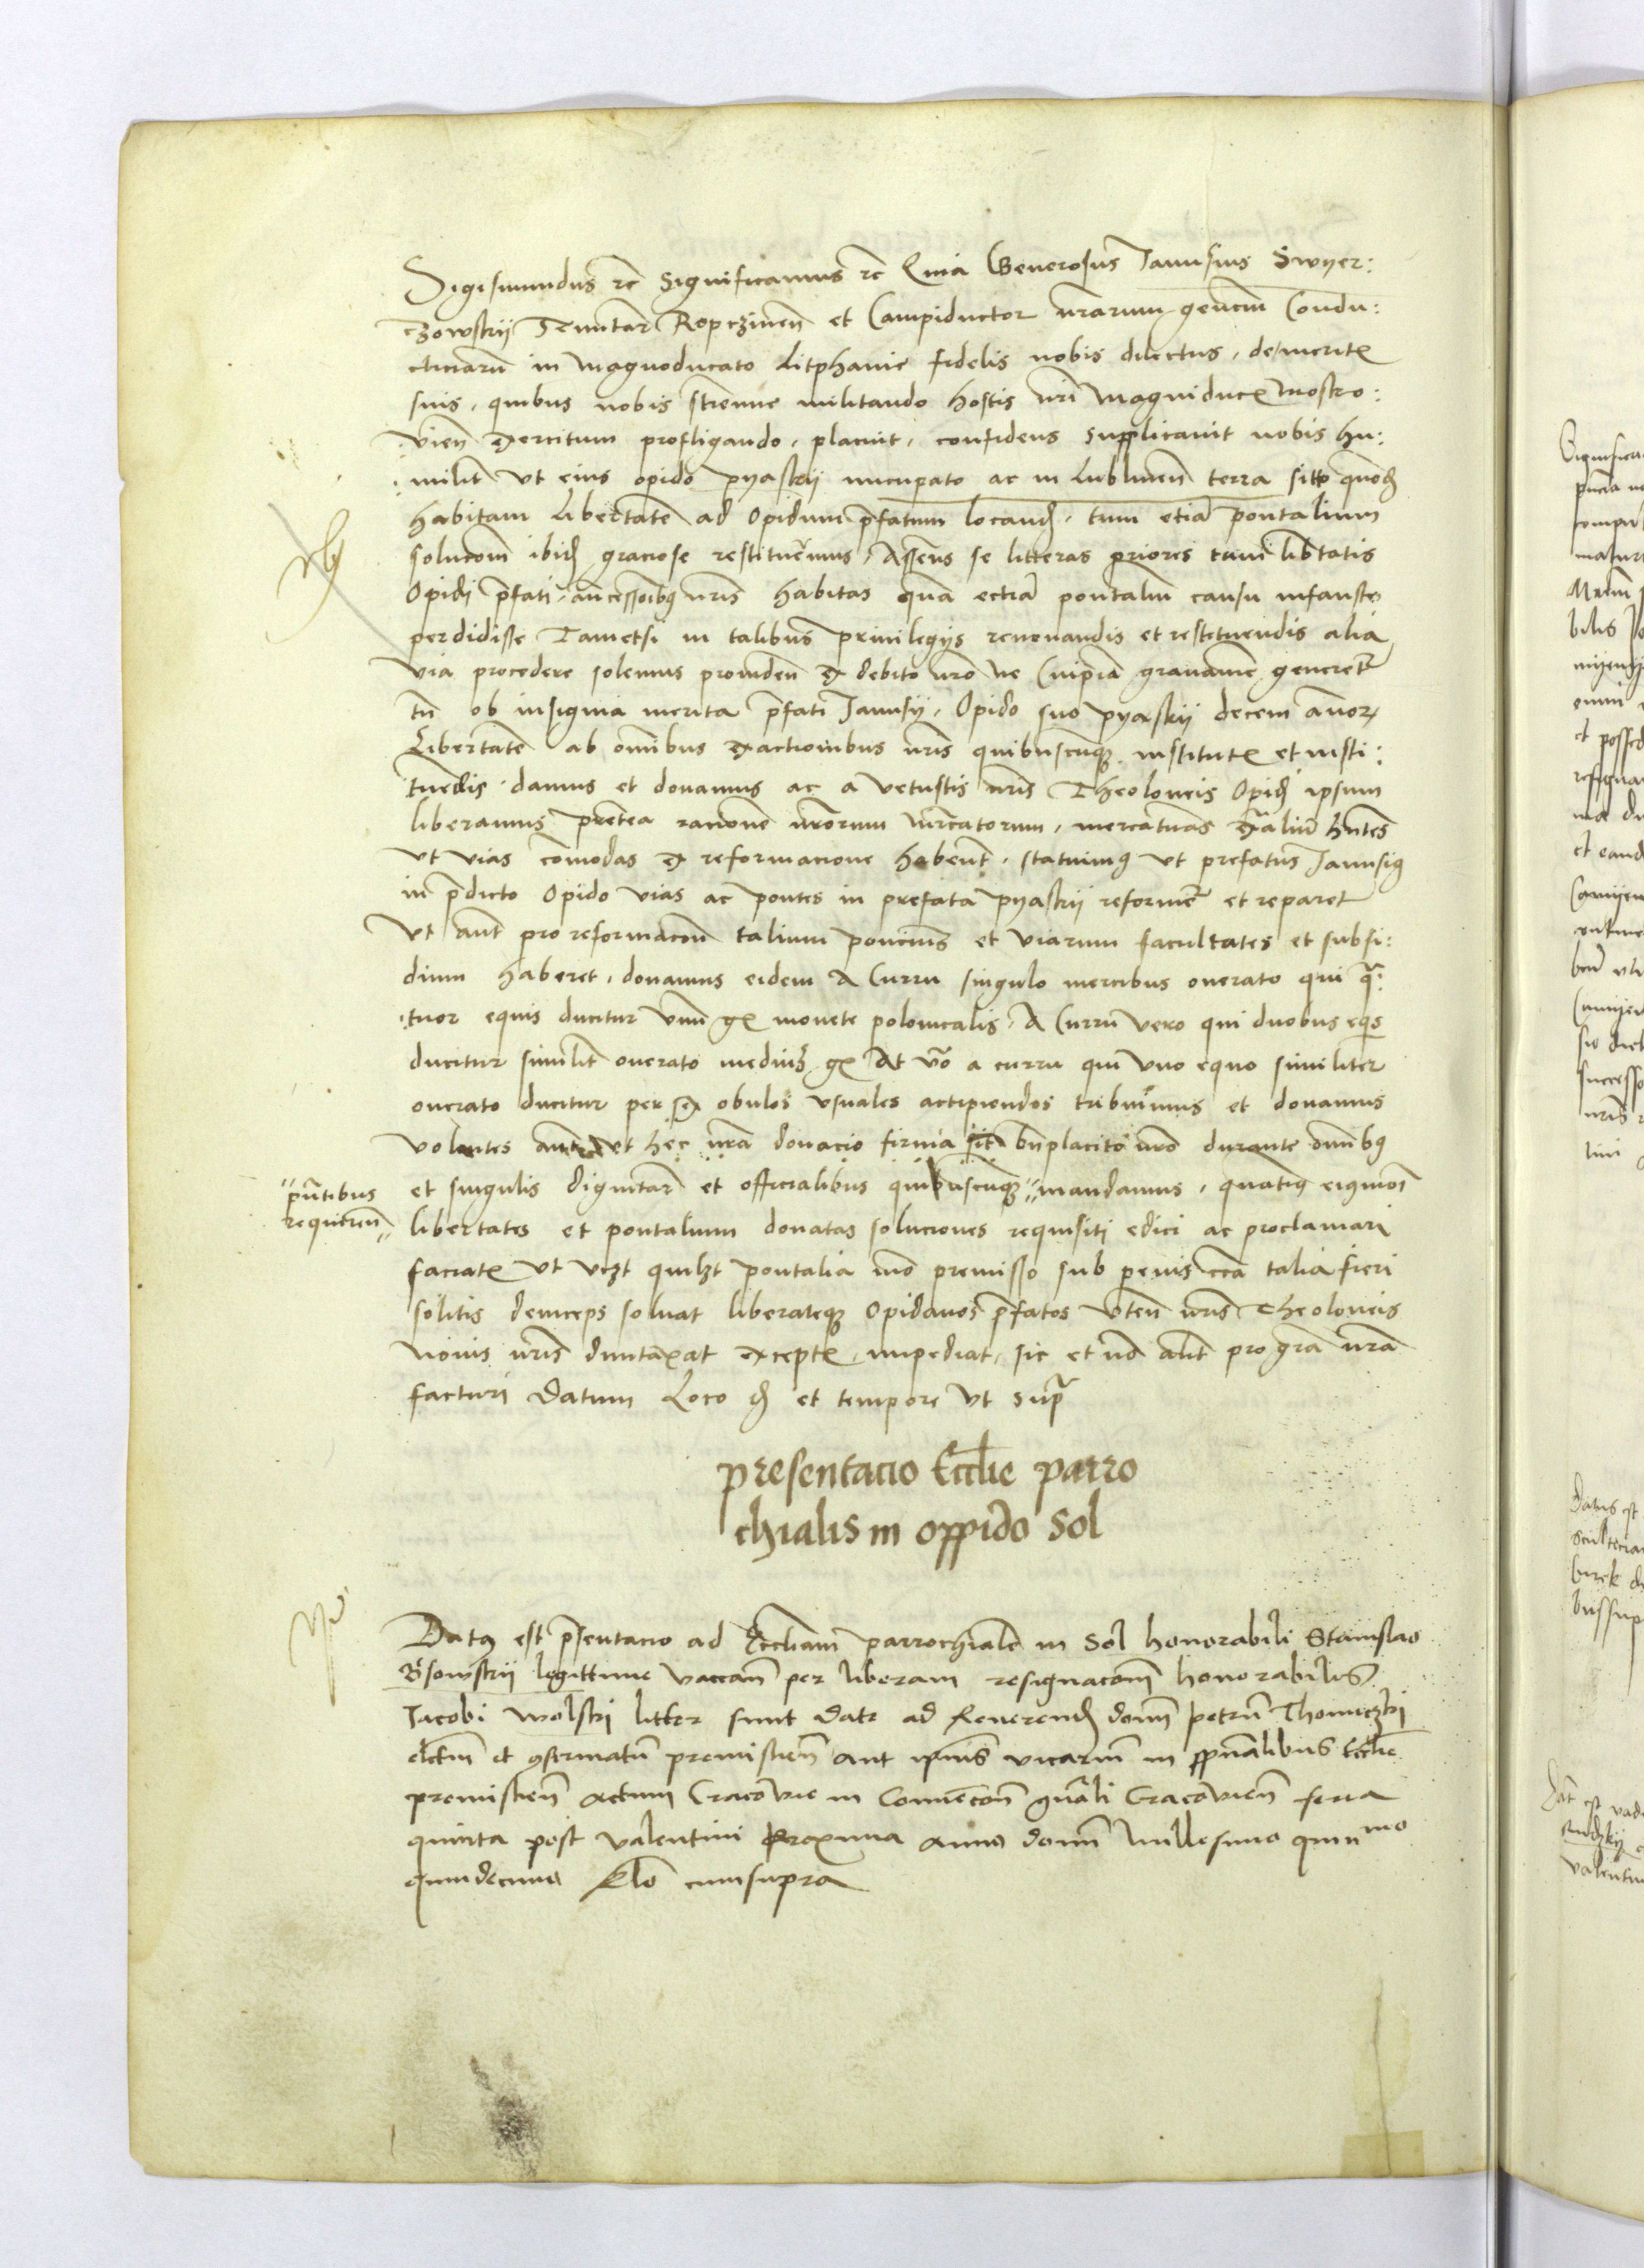 Sigismundus rc Significamus rc Quia Generosus Janusius Swyer:
czowskij Tenutar Ropczinen et Campiductor nrarum gencium Condu:
cticiarũ in Magnoducato Litphanie fidelis nobis dilectus, de meritis
suis, quibus nobis strenue militando hostis nri Magniducis Mosko:
vien exercitum profligando, placuit, confidens supplicauit nobis hu:
:milit vt eius opido pyaskij nucupato ac in Lublinen terra sitto
habitam Libertatẽ ad Opidum p̃fatum locand, tum etiã pontalium
solucom ibid graciose restituẽmus, Asserens se litteras priores tam libtatis
Opidi p̃fati, ancessoribus nris habitas quã eciã pontaliũ causu infausto
perdidisse Tametsi in talibus priuilegijs renouandis et restituendis alia
via procedere solemus prouiden ex debito nro ne Cuipiã grauamẽ generet
tñ ob insignia merita p̃fati Janusij, Opido suo pyaskij decem annor
Libertatẽ ab omibus exactionibus nris quibuscunque institutis et insti:
tuẽdis, damus et donamus ac a vetustis nris Theoloneis Opid ipsum
liberamus preterea racione nrorum mercatorum, mercaturas exaliũ hntes
vt vias comodas ex reformacione habent, statuimus vt prefatus Janusius
in p̃dicto Opido vias ac pontes in prefata pyaskij reformet et reparet
vt aut pro reformacõn talium poncium et viarum facultates et subsi:
dium haberet, donamus eidem A Curru singulo mercibus onerato qui qua:
:tuor equis ducitur vnũ gs monete polonicalis, A Curru vero qui duobus eqis
ducitur similit onerato mediũ gs At vo a curru qui vno equo similiter
onerato ducitur per sex obulos vsuales accipiendos tribuimus et donamus
volentes aut vt hec nra donacio firma sit bnplacito nro durante omibus
et singulis dignitar et officialibus quibuscunque mandamus, quatinus eiusmoi
p̃ntibus
requiren
libertates et pontalium donatas soluciones requisiti edici ac proclamari
faciatis vt quilibet pontalia mo premisso sub penis talia fieri
solitis deinceps soluat liberatque opidanos p̃fatos nris Theoloneis
nouis nris duntaxat exceptis, impediat, sic et no alit pro gra nra
facturi Datum Loco et tempore vt supra
presentacio Ecclie parro
chialis in oppido Sol
Data est p̃sentacio ad Eccliam parrochialẽ in Sol honorabili Stanislao
legittime vacan per liberam resignacom honorabilis
Jacobi Wolski litter sunt date ad Reverend dom petrũ Thomiczki
electũ et confirmatũ premislien aut ipius vicariũ in spũalibus Ecclie
premislien Actum Cracovie in Convẽcõn gñali Cracovien feria
quinta post Valentini proxima anno domi Millesimo quinmo
quindecimo Rlo cuiusupra